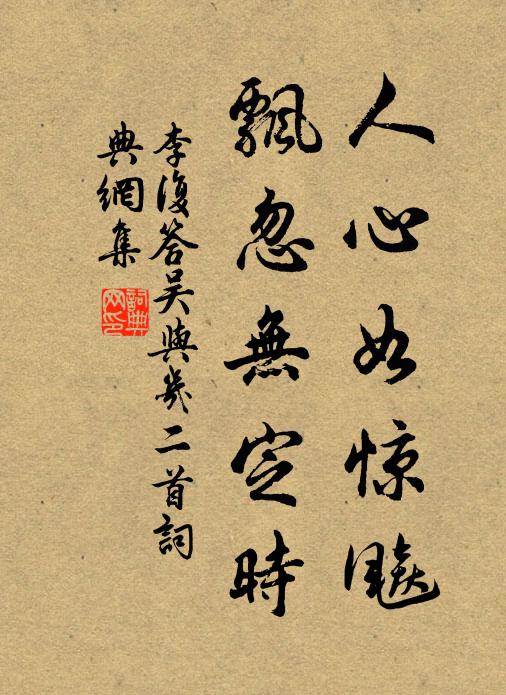 人心如惊飚
飘忽無定時
李復答吴與幾二首詞
典網集
詞典
网印